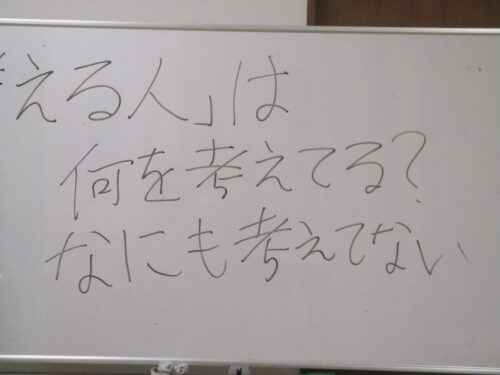 える人」は
何を考えてる?
なにも考えてない